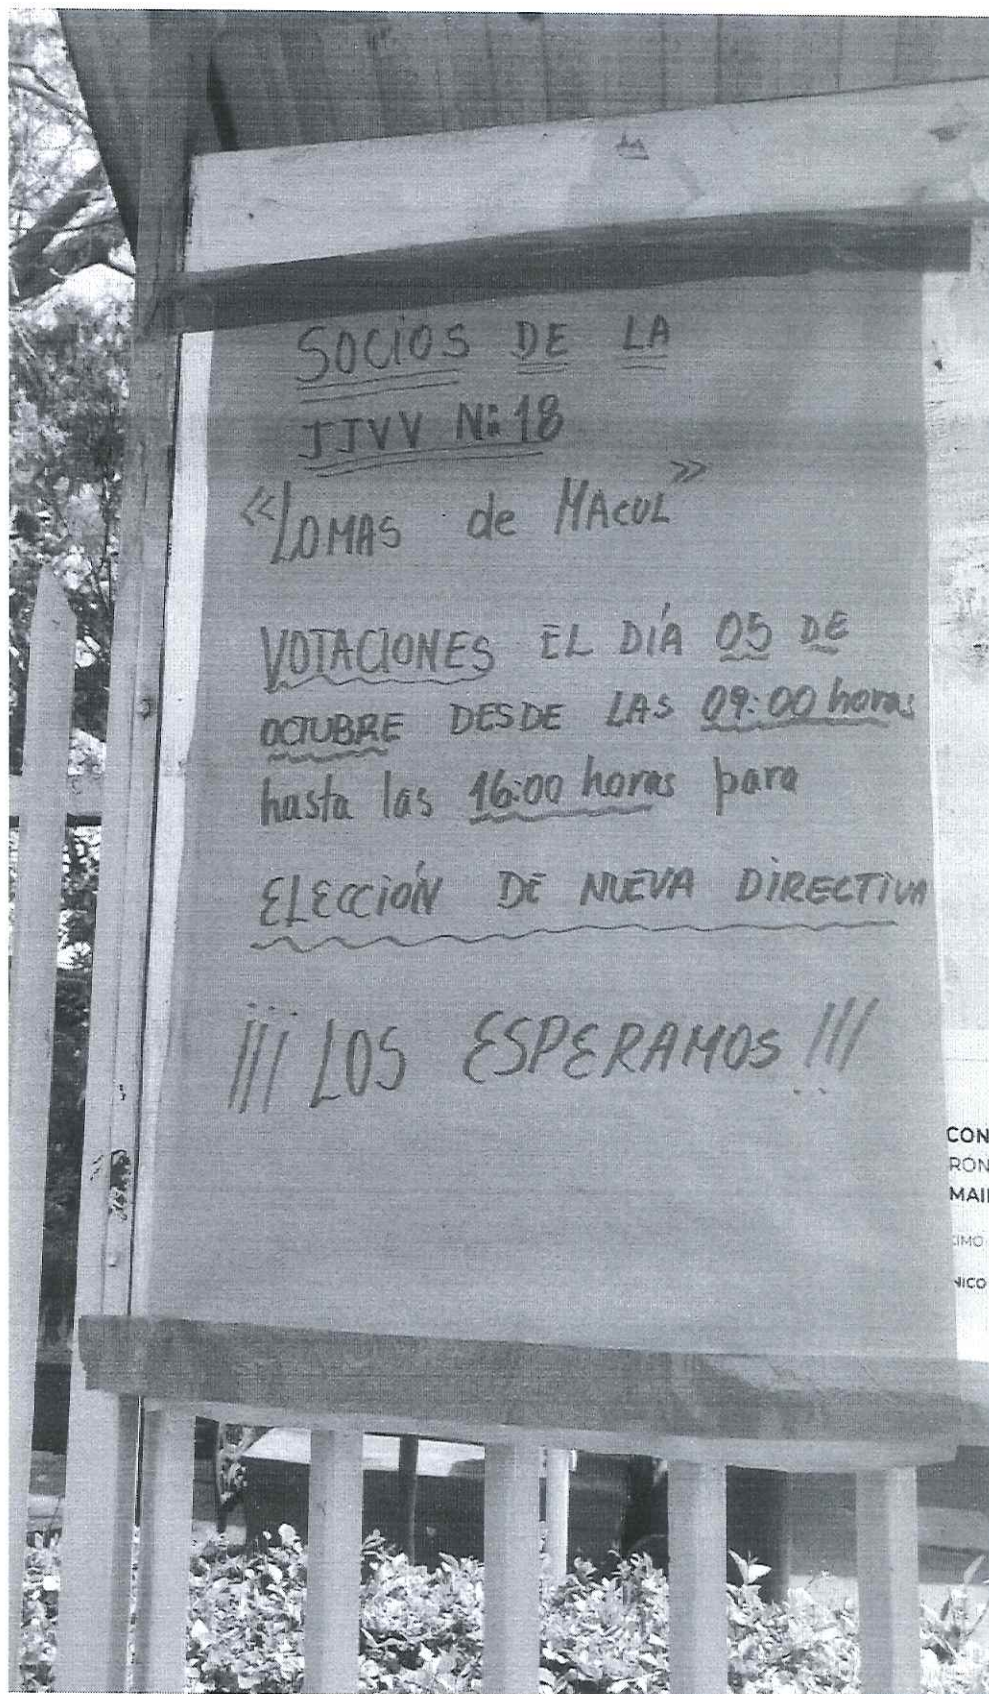 SOCIOS DE LA
JJVV N: 18
"LOMAS de MACUL"
VOTACIONES EL DÍA 05 DE
OCTUBRE DESDE LAS 09:00 horas
hasta las 16:00 horas para
ELECCIÓN DE NUEVA DIRECTIVA
¡¡¡ LOS ESPERAMOS !!!
CON
RÓN
MAI
IMO
NICO